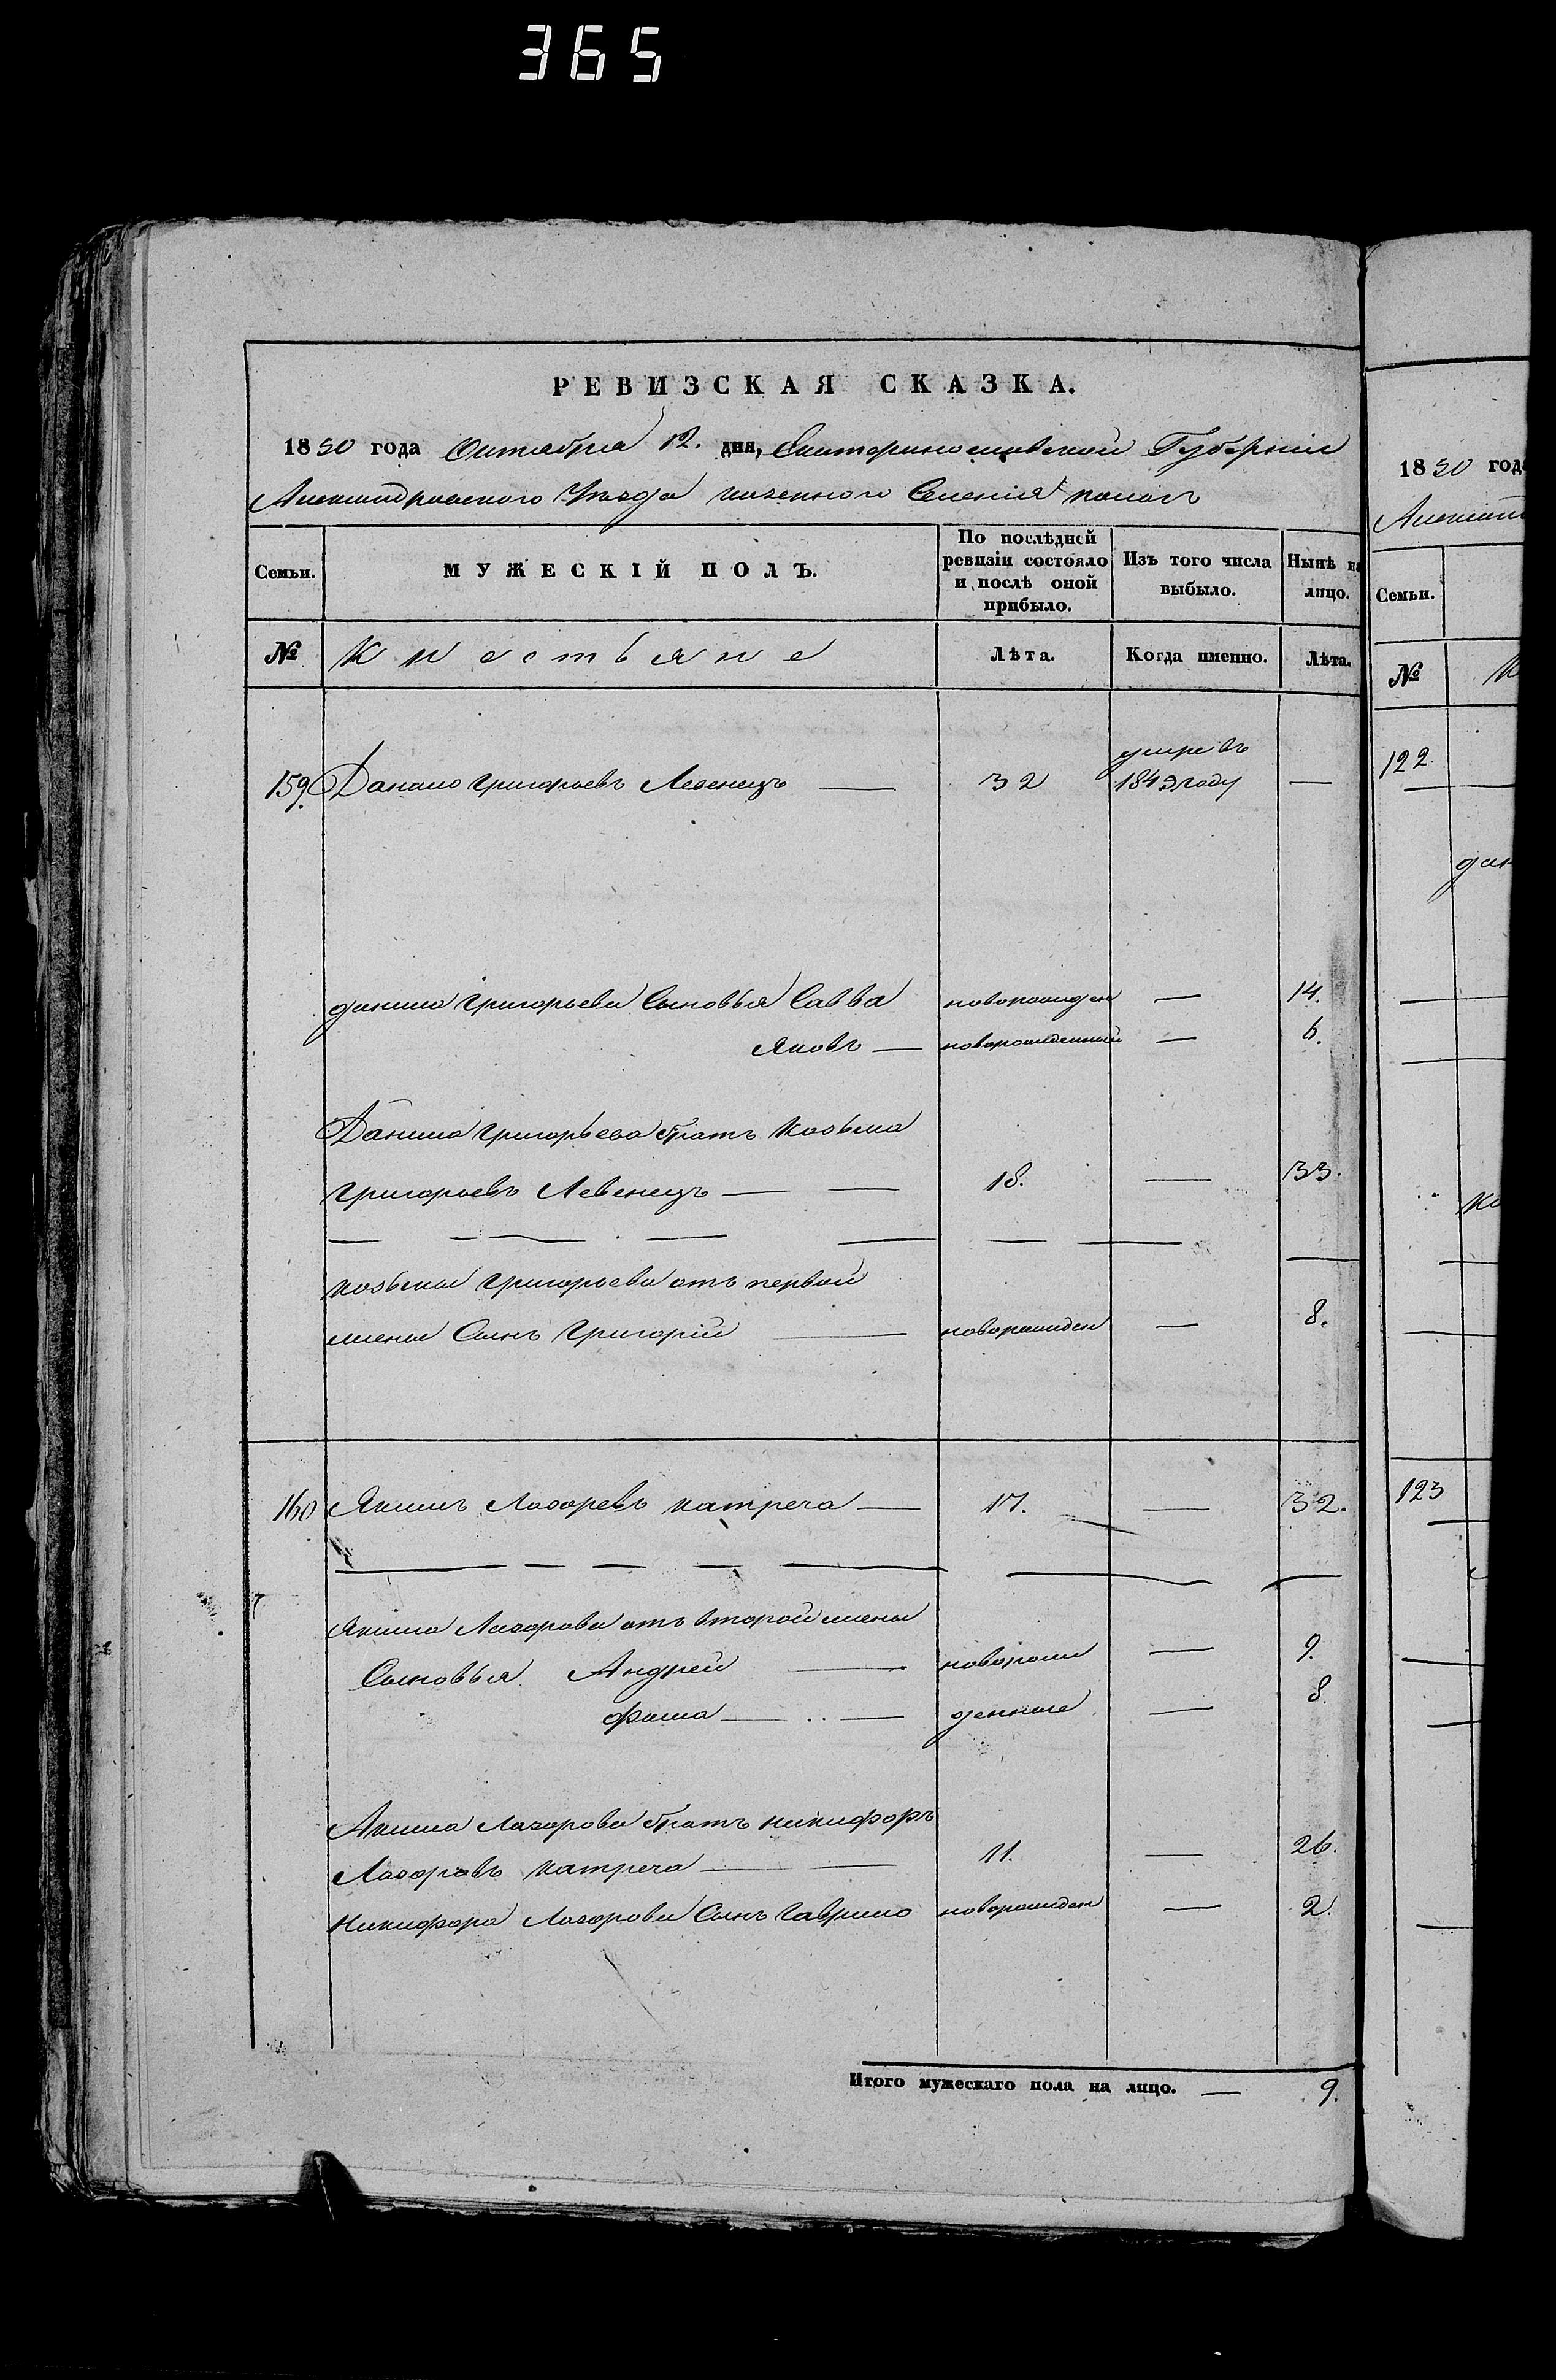 365
РЕВИЗСКАЯ СКАЗКА.
1850 года Октября 12. дня, Екатеринославской Губерніи
Александровского Уезда казенного Селенія
Семьи.
МУЖЕСКІЙ ПОЛЪ.
По послѣдней ревизіи состояло и послѣ оной прибыло.
Изъ того числа выбыло.
Нынѣ на лицо.
№
Крестьяне
Лѣта.
Когда именно.
Лѣта.
159. Данило Григорьевъ Левенецъ — 32 умре въ 1849 году —
данила Григорьева Сыновья Савва новорожден — 14.
Яковъ — новорожденный — 6.
Данила Григорьева братъ Козьма
Григорьевъ Левенецъ — — 18. — 33.
козьмы Григорьева отъ первой
жены Сынъ Григорій — новорожден — 8.
160 Якимъ Лазаревъ катреча — 17. — 32.
Якима Лазорова отъ второй жены
Сыновья Андрей — новорож — 9.
фома — .. — денные — 8.
Акима Лазорова братъ никифоръ
Лазоровъ катреча — — 11. — 26.
Никифора Лазорова Сынъ Гаврило новорожден — 2.
Итого мужескаго пола на лицо. — 9.
1850 года
Семьи.
№
122
123